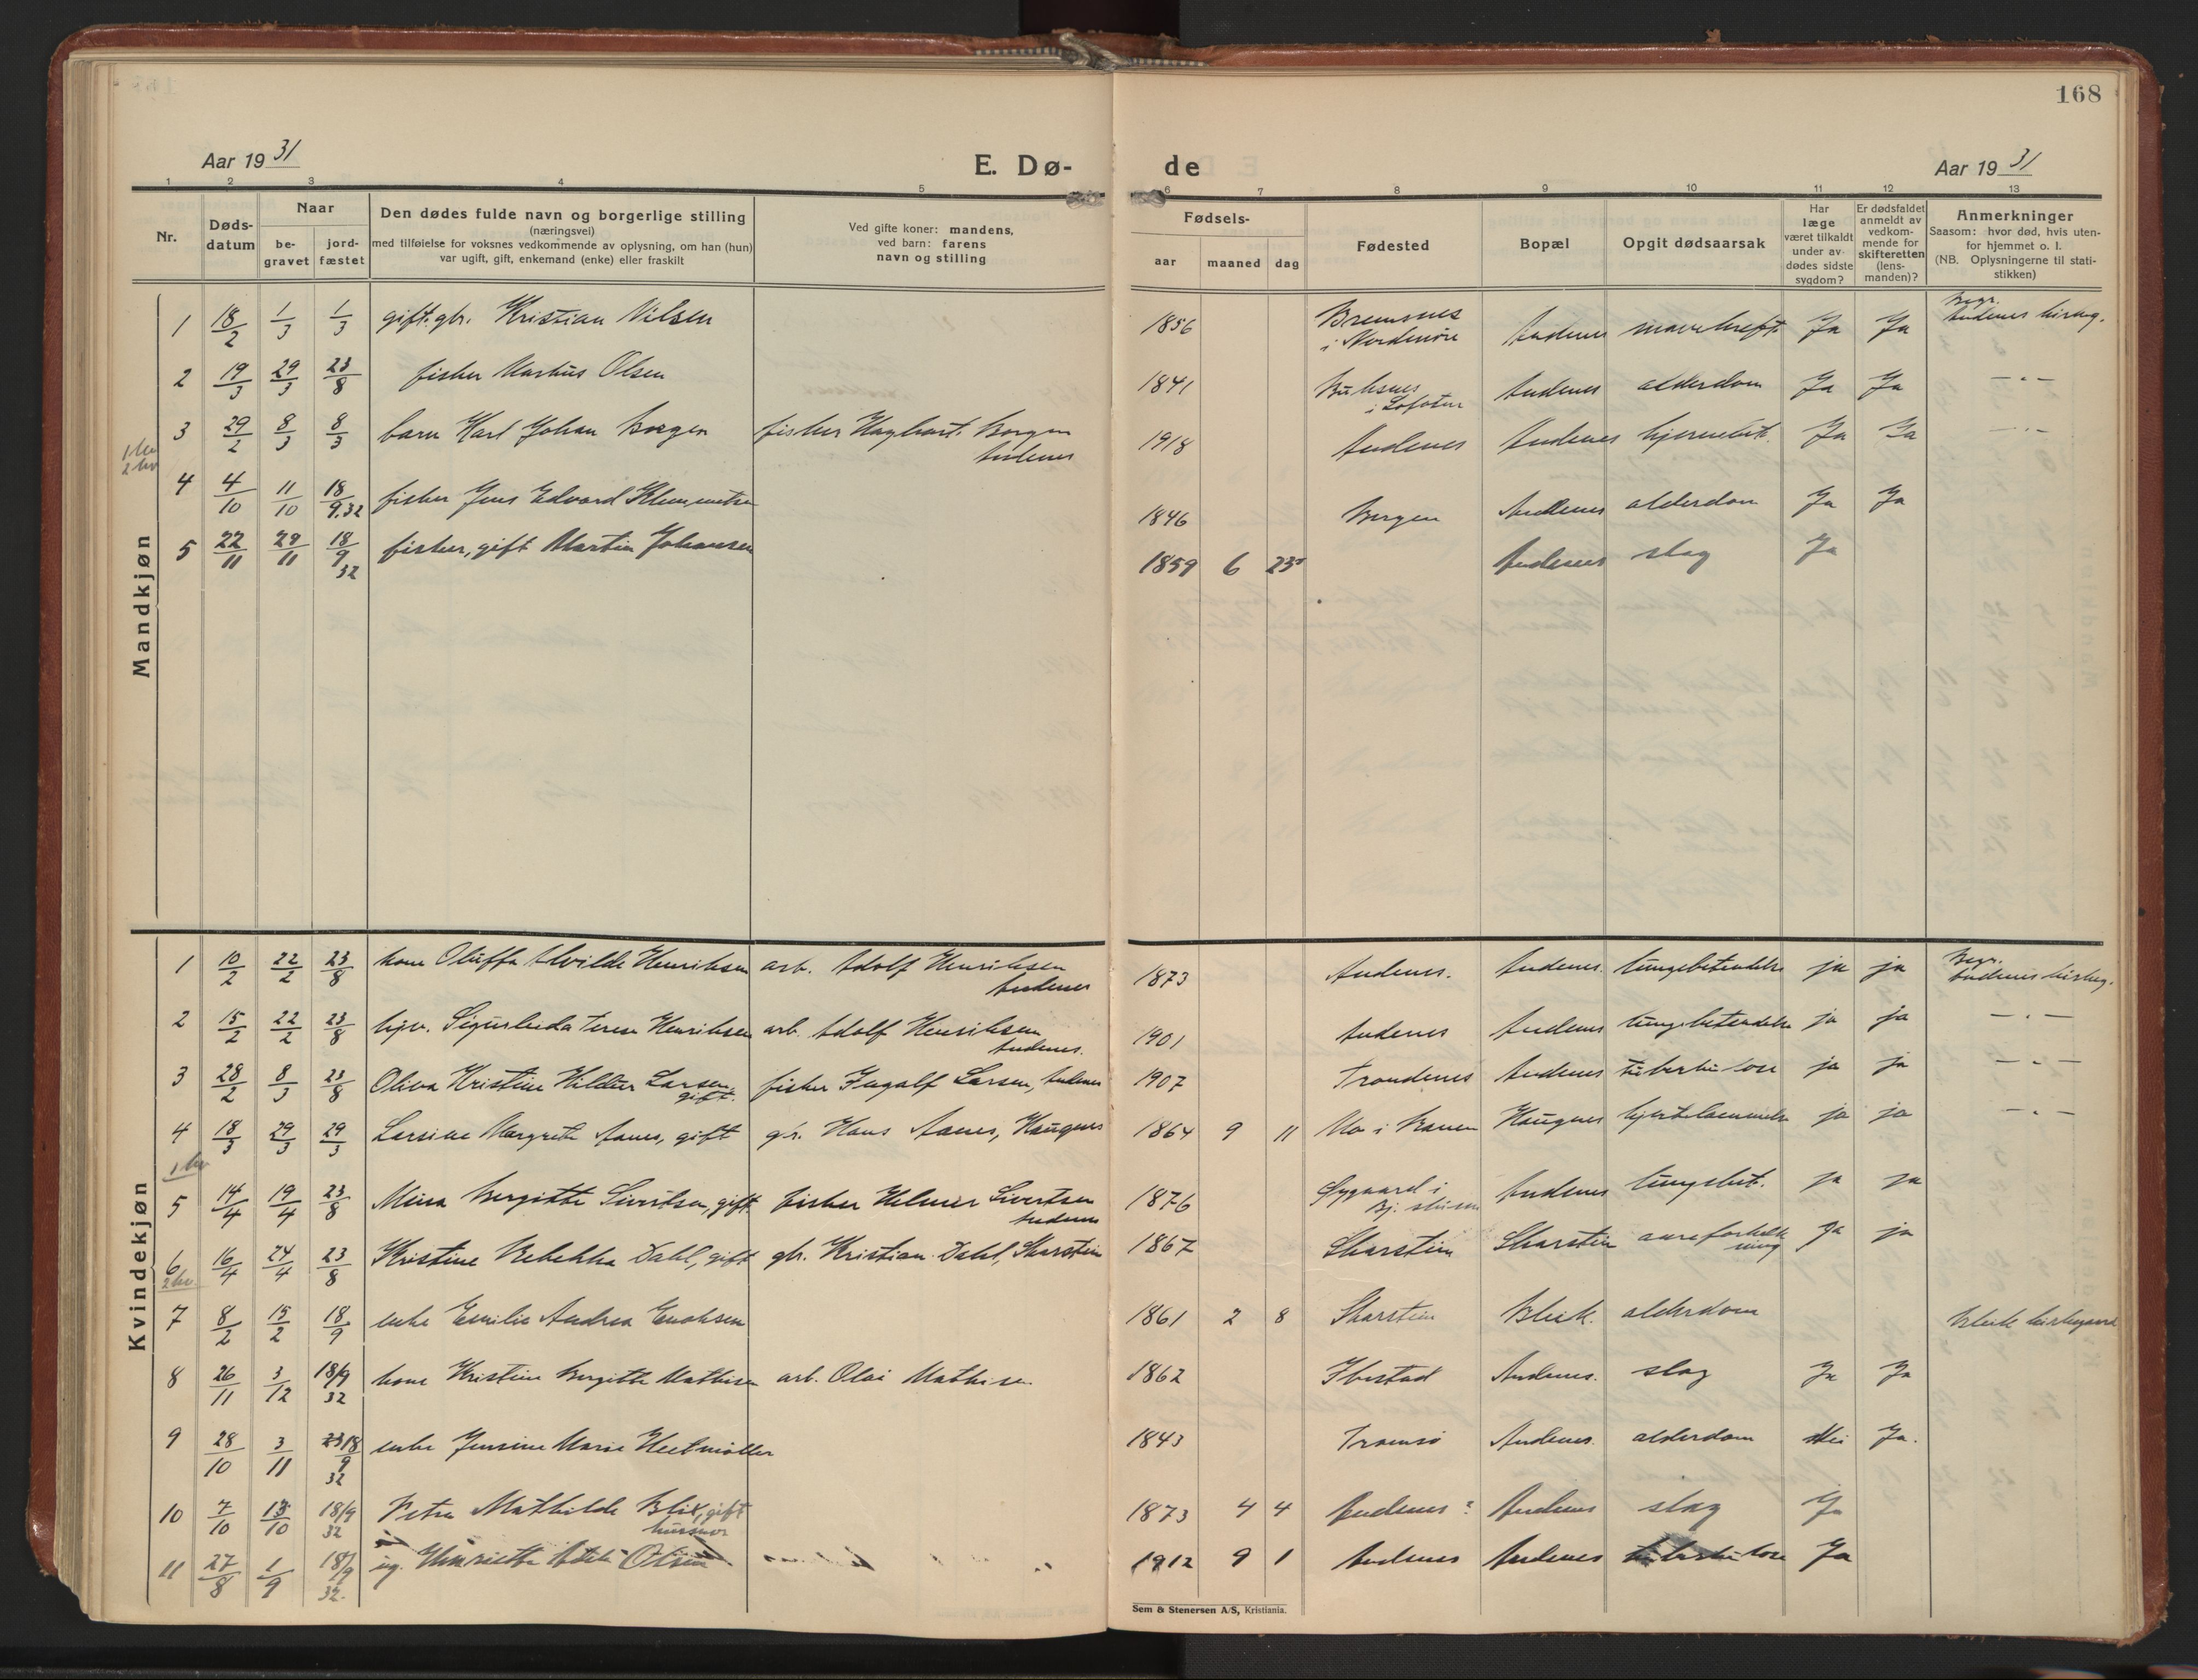 168
Aar 1931
E. Dø-
de
Aar 1931
1 2 3 4 5 6 7 8 9 10 11 12 13
Nr.
Døds-
datum
Naar
be-
gravet
jord-
fæstet
Den dødes fulde navn og borgerlige stilling
(næringsvei)
med tilføielse for voksnes vedkommende av oplysning, om han (hun)
var ugift, gift, enkemand (enke) eller fraskilt
Ved gifte koner: mandens,
ved barn: farens
navn og stilling
Fødsels-
aar maaned dag
Fødested
Bopæl
Opgit dødsaarsak
Har
læge
været tilkaldt
under av-
dødes sidste
sygdom?
Er dødsfaldet
anmeldt av
vedkom-
mende for
skifteretten
(lens-
manden)?
Anmerkninger
Saasom: hvor død, hvis uten-
for hjemmet o. l.
(NB. Oplysningerne til stati-
stikken)
Mandkjøn
1 18/2 1/3 1/3 gift. gbr. Kristian Nilsen 1856 Bremsnes i Nordmøre Andenes mavekreft Ja Ja Begr. Andenes kirkeg.
2 19/3 29/3 23/8 fisker Markus Olsen 1841 Buksnes i Lofoten Andenes alderdom Ja Ja — " —
3 29/2 8/3 8/3 barn Karl Johan Borgen fisker Haghart Borgen Andenes 1918 Andenes Andenes hjernebet. Ja Ja — " —
1 kv
2 kv
4 4/10 11/10 18/9.32 fisker Jens Edvard Klemmetsen 1846 Bergen Andenes alderdom Ja Ja
5 22/11 29/11 18/9 32 fisker, gift Martin Johansen 1859 6 23 Andenes slag Ja
Kvindekjøn
1 10/2 22/2 23/8 kone Oluffa Alvilde Henriksen arb. Adolf Henriksen Andenes 1873 Andenes. Andenes. lungebetendelse ja ja Begr. Andenes kirkeg.
2 15/2 22/2 23/8 Terese Henriksen arb. Adolf Henriksen Andenes. 1901 Andenes Andenes lungebetendelse ja ja — " —
3 28/2 8/3 23/8 Oliva Kristine Hildur Larsen, gift. fisker Ingolf Larsen, Andenes 1907 Trondenes Andenes tuberkulose ja ja — " —
4 18/3 29/3 29/3 Larsine Margrete Aanes, gift gbr. Hans Aanes, Haugnes 1864 9 11 Mo i Ranen Haugnes hjertelammelse ja ja — " —
1 kv
5 14/4 19/4 23/8 Mina Bergitte Sivertsen, gift. fisker Helmer Sivertsen Andenes 1876 Andenes lungebet. ja ja
6 16/4 24/4 23/8 Kristine Rebekka Dahl, gift gbr. Kristian Dahl, Skarstein 1867 Skarstein Skarstein aareforkalkning Ja ja
2 kv
7 8/2 15/2 18/9 enke Emilie Andrea Enoksen 1861 2 8 Skarstein Bleik. alderdom Bleik kirkegaard
8 26/11 3/12 18/9 32 kone Kristine Bergitte Mathisen arb. Olai Mathisen 1862 Ibestad Andenes. slag Ja Ja
9 28/10 3/11 18/9 32 enke Jensine Marie Heitmøller 1843 Tromsø Andenes. alderdom Nei Ja.
10 7/10 13/10 18/9 32 Petra Mathilde Blix, gift husmor 1873 4 4 Andenes? Andenes slag Ja
11 27/8 1/9 18/9 32. ug. Henriette Adele Olsen 1912 9 1 Andenes Andenes tuberkulose Ja
Sem & Stenersen A/S, Kristiania.